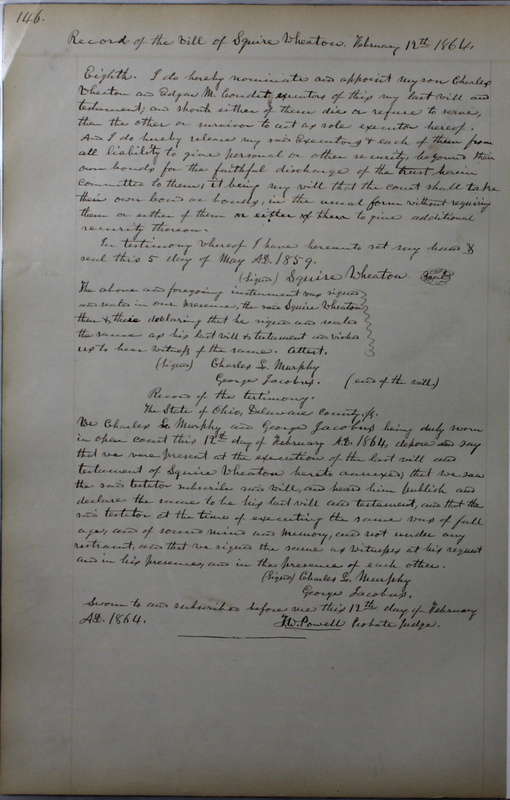 146.
Record of the Will of Squire Wheaton. February 12th 1864.
Eighth. I do hereby nominate and appoint my son Charles
Wheaton and Edgar M. Condit executors of this my last will and
testament, and should either of them die or refuse to serve,
then the other or survivor to act as sole executor hereof.
And I do hereby release my said Executors & each of them from
all liability to give personal or other security beyond their
own bonds for the faithful discharge of the trust herein
committed to them, it being my will that the court shall take
their own bond or bonds, in the usual form without requiring
them or either of them or either of them to give additional
security thereon.
In testimony whereof I have hereunto set my hand &
seal this 5 day of May AD. 1859.
(Signed) Squire Wheaton Seal
The above and foregoing instrument was signed
and sealed in our presence, the said Squire Wheaton
then & there declaring that he signed and sealed
the same as his last will & testament and wished
us to bear witness of the same. Attest.
(Signed) Charles L. Murphy
George Jacobus. (end of the will)
Record of the testimony.
The State of Ohio, Delaware County, ss.
We Charles L. Murphy and George Jacobus being duly sworn
in open court this 12th day of February AD. 1864, depose and say
that we were present at the execution of the last will and
testament of Squire Wheaton hereto annexed, that we saw
the said testator subscribe said will, and heard him publish and
declare the same to be his last will and testament, and that the
said testator at the time of executing the same was of full
age, and of sound mind and memory, and not under any
restraint, and that we signed the same as witnesses at his request
and in his presence, and in the presence of each other.
(Signed) Charles L. Murphy
George Jacobus.
Sworn to and subscribed before me this 12th day of February
AD. 1864. T.W. Powell Probate Judge.